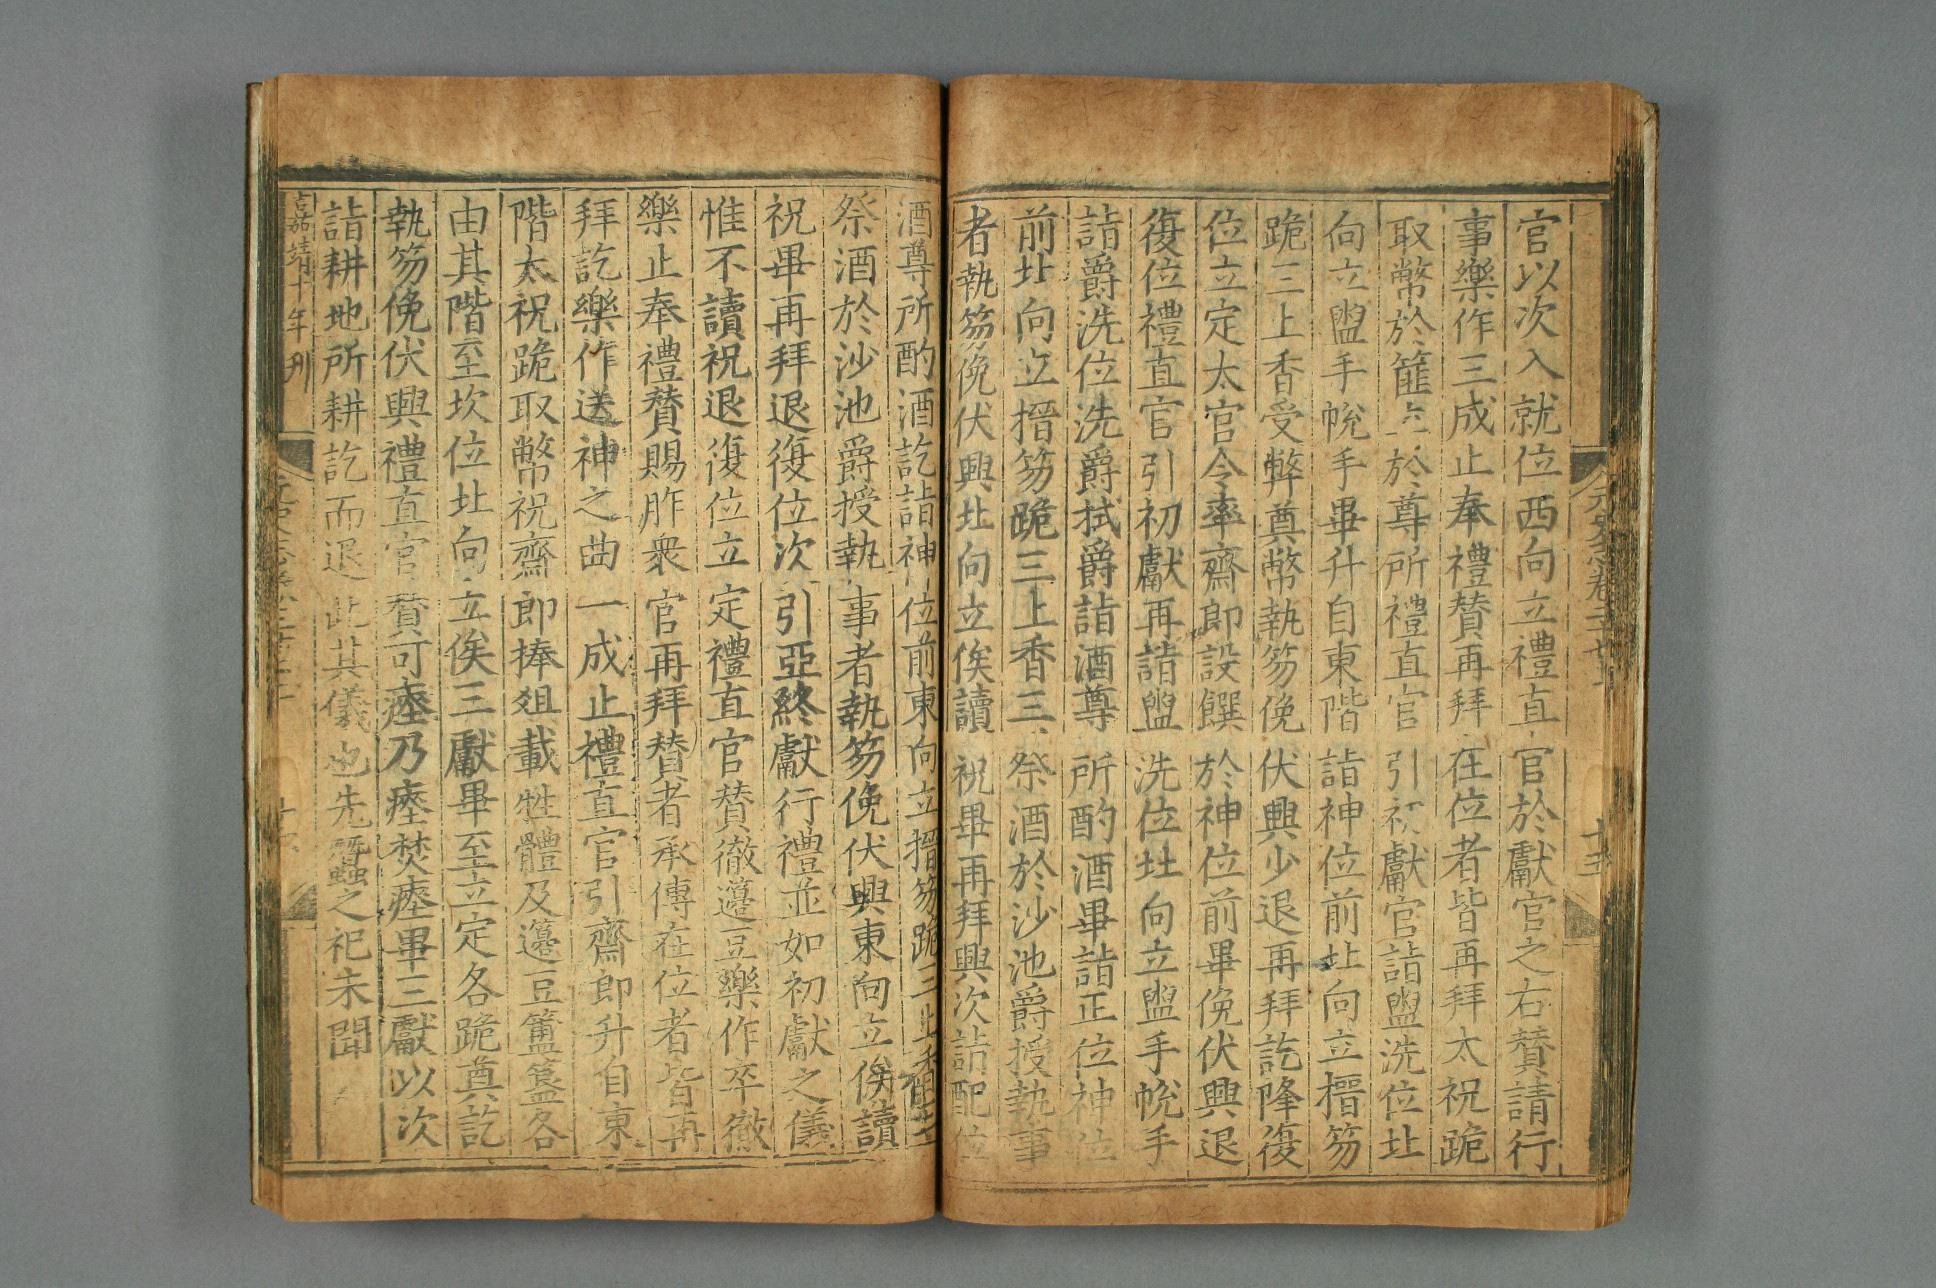 官以次入就位西向立禮直官於獻官之右贊請行
事樂作三成止奉禮贊再拜在位者皆再拜太祝跪
取幣於篚立於尊所禮直官引初獻官詣盥洗位北
向立盥手帨手畢升自東階詣神位前北向立搢笏
跪三上香受幣奠幣執笏俛伏興少退再拜訖降復
位立定太官令率齋郎設饌於神位前畢俛伏興退
復位禮直官引初獻再詣盥洗位北向立盥手帨手
詣爵洗位洗爵拭爵詣酒尊所酌酒畢詣正位神位
前北向立搢笏跪三上香三祭酒於沙池爵授執事
者執笏俛伏興北向立俟讀祝畢再拜興次詣配位
酒尊所酌酒訖詣神位前東向立搢笏跪三上香三
祭酒於沙池爵授執事者執笏俛伏興東向立俟讀
祝畢再拜退復位次引亞終獻行禮並如初獻之儀
惟不讀祝退復位立定禮直官贊徹籩豆樂作卒徹
樂止奉禮贊賜胙衆官再拜贊者承傳在位者皆再
拜訖樂作送神之曲一成止禮直官引齋郎升自東
階太祝跪取幣祝齋郎捧俎載牲體及籩豆簠簋各
由其階至坎位北向立俟三獻畢至立定各跪奠訖
執笏俛伏興禮直官贊可瘞乃瘞焚瘞畢三獻以次
詣耕地所耕訖而退此其儀也先蠶之祀未聞
嘉靖十年刊